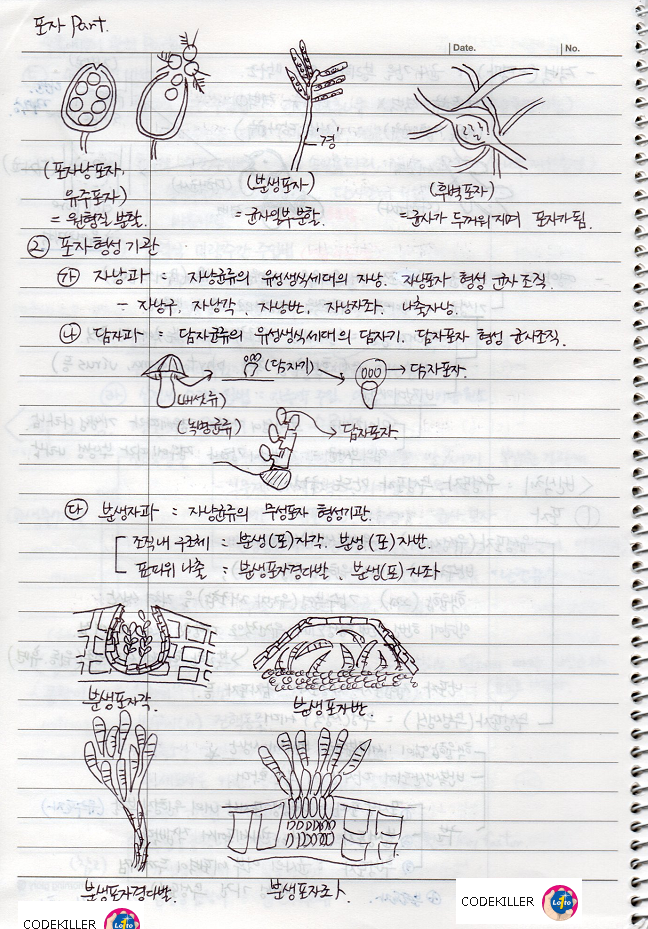 포자 Part.
Date. No.
'경'
(포자낭포자,
유주포자)
= 원형질 분할.
(분생포자)
= 균사일부 분할.
(후벽포자)
= 균사가 두꺼워지며 포자가 됨.
② 포자형성기관
㉮ 자낭과 : 자낭균류의 유성생식세대의 자낭. 자낭포자 형성 균사조직.
- 자낭구, 자낭각, 자낭반, 자낭자좌, 나출자낭.
㉯ 담자과 : 담자균류의 유성생식세대의 담자기. 담자포자 형성 균사조직.
(담자기) 담자포자.
(버섯류)
(녹병균류) 담자포자.
㉰ 분생자과 : 자낭균류의 무성포자 형성기관.
조직내 구조체 : 분생(포)자각. 분생(포)자반.
표피위 나출 : 분생포자경다발, 분생(포)자좌
분생포자각. 분생포자반.
분생포자경다발. 분생포자좌.
CODEKILLER Lotto
CODEKILLER Lotto